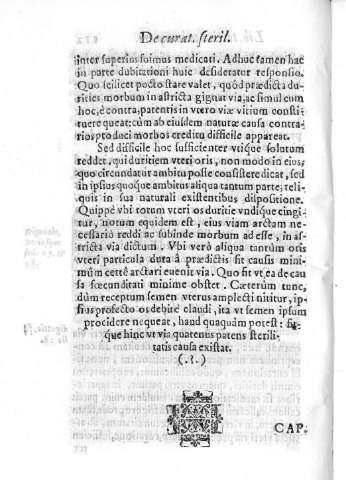 De curat. steril.
inter superius suimus medicati. Adhuc tamen hac
in parte dubitationi huic desideratur responsio.
Quo scilicet pacto stare valet, quòd prædicta du-
rities morbum in astricta gignat via, ac simul cum
hoc, è contra, patentis in vtero viæ vitium consti-
tuere queat: cum ab eiusdem naturæ causa contra-
rios produci morbos creditu difficile appareat.
Sed difficile hoc sufficienter vtique solutum
reddet, qui duritiem vteri oris, non modo in eius,
quo circundatur ambitu posse consistere dicat, sed
in ipsius quoque ambitus aliqua tantum parte, reli-
quis in sua naturali existentibus dispositione.
Quippè vbi totum vteri os duritie vndique cingi-
tur, notum equidem est, eius viam arctam ne-
cessariò reddi ac subinde morbum ad esse, in as-
tricta via dictum. Vbi verò aliqua tantùm oris
vteri particula dura à prædictis fit causis mini-
mùm certè arctari euenit via. Quo fit vt ea de cau
sa fœcunditati minimè obstet. Cæterùm tunc,
dùm receptum semen vterus amplecti nititur, ip-
sius profecto os debitè claudi, ita vt semen ipsum
procidere nequeat, haud quaquàm potest: sit-
que hinc vt via quatenus patens sterili-
tatis causa existat.
(.?.)
CAP.